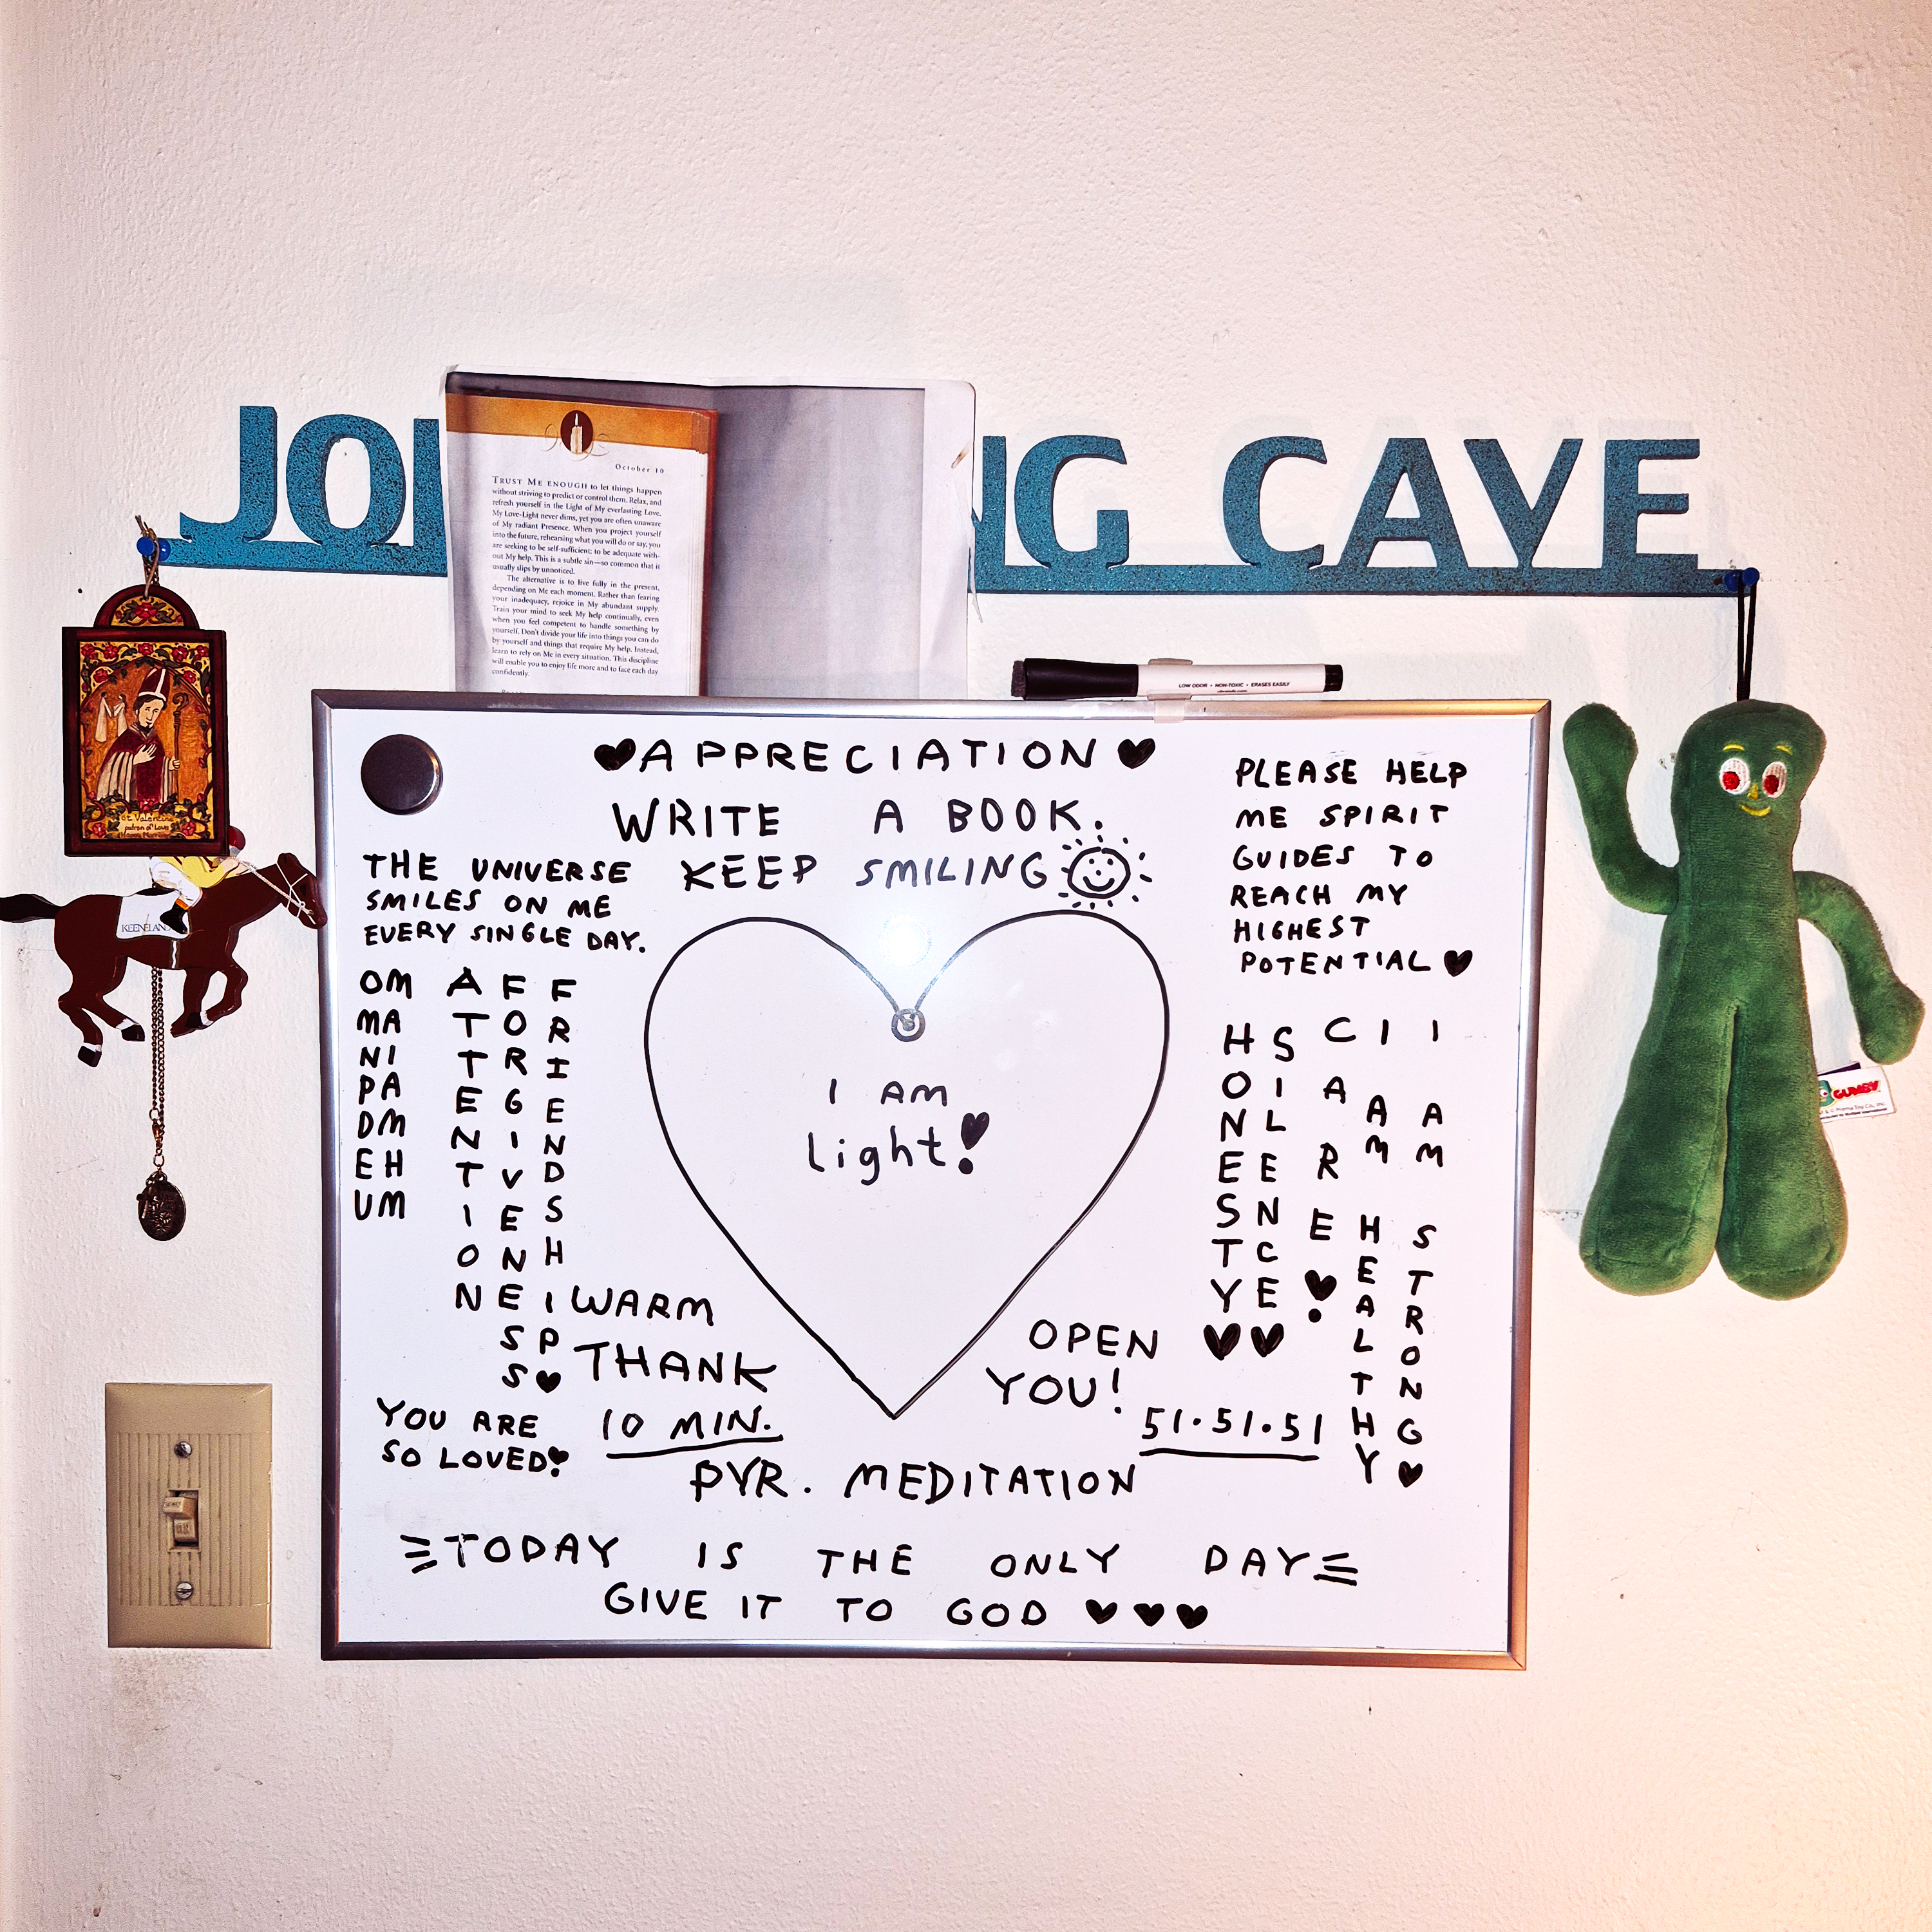 JO NG CAVE
October 10
TRUST ME ENOUGH to let things happen
without striving to predict or control them. Relax, and
refresh yourself in the Light of My everlasting Love.
My Love-Light never dims, yet you are often unaware
of My radiant Presence. When you project yourself
into the future, rehearsing what you will do or say, you
are seeking to be self-sufficient: to be adequate with-
out My help. This is a subtle sin—so common that it
usually slips by unnoticed.
The alternative is to live fully in the present,
depending on Me each moment. Rather than fearing
your inadequacy, rejoice in My abundant supply.
Train your mind to seek My help continually, even
when you feel competent to handle something by
yourself. Don't divide your life into things you can do
by yourself and things that require My help. Instead,
learn to rely on Me in every situation. This discipline
will enable you to enjoy life more and to face each day
confidently.
LOW ODOR • NON-TOXIC • ERASES EASILY
St. Valentine
patron of Love
KEENELAN
GUMBY
APPRECIATION
WRITE A BOOK.
KEEP SMILING
THE UNIVERSE
SMILES ON ME
EVERY SINGLE DAY.
PLEASE HELP
ME SPIRIT
GUIDES TO
REACH MY
HIGHEST
POTENTIAL
OM
MA
NI
PA
DM
EH
UM
ATTENTION
FORGIVENESS
FRIENDSHIP
I AM
light!
HONESTY
SILENCE
CARE!
I AM HEALTHY
I AM STRONG
WARM OPEN
THANK YOU!
YOU ARE
SO LOVED!
10 MIN. 51.51.51
PYR. MEDITATION
TODAY IS THE ONLY DAY
GIVE IT TO GOD